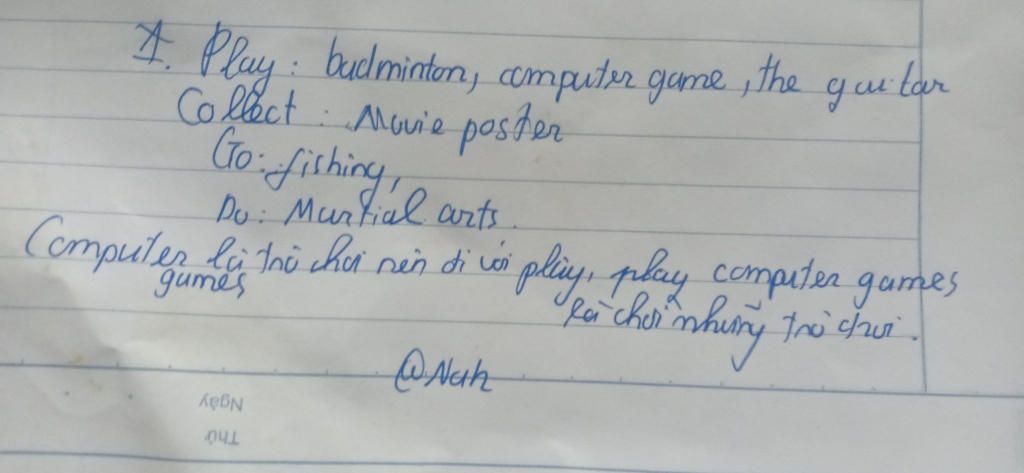 1. Play: badminton, computer game, the guitar
Collect: Movie poster
Go: fishing,
Do: Martial arts.
Computer là trò chơi nên đi với play, play computer games
games
là chơi những trò chơi.
@Nah
Ngày
Thứ